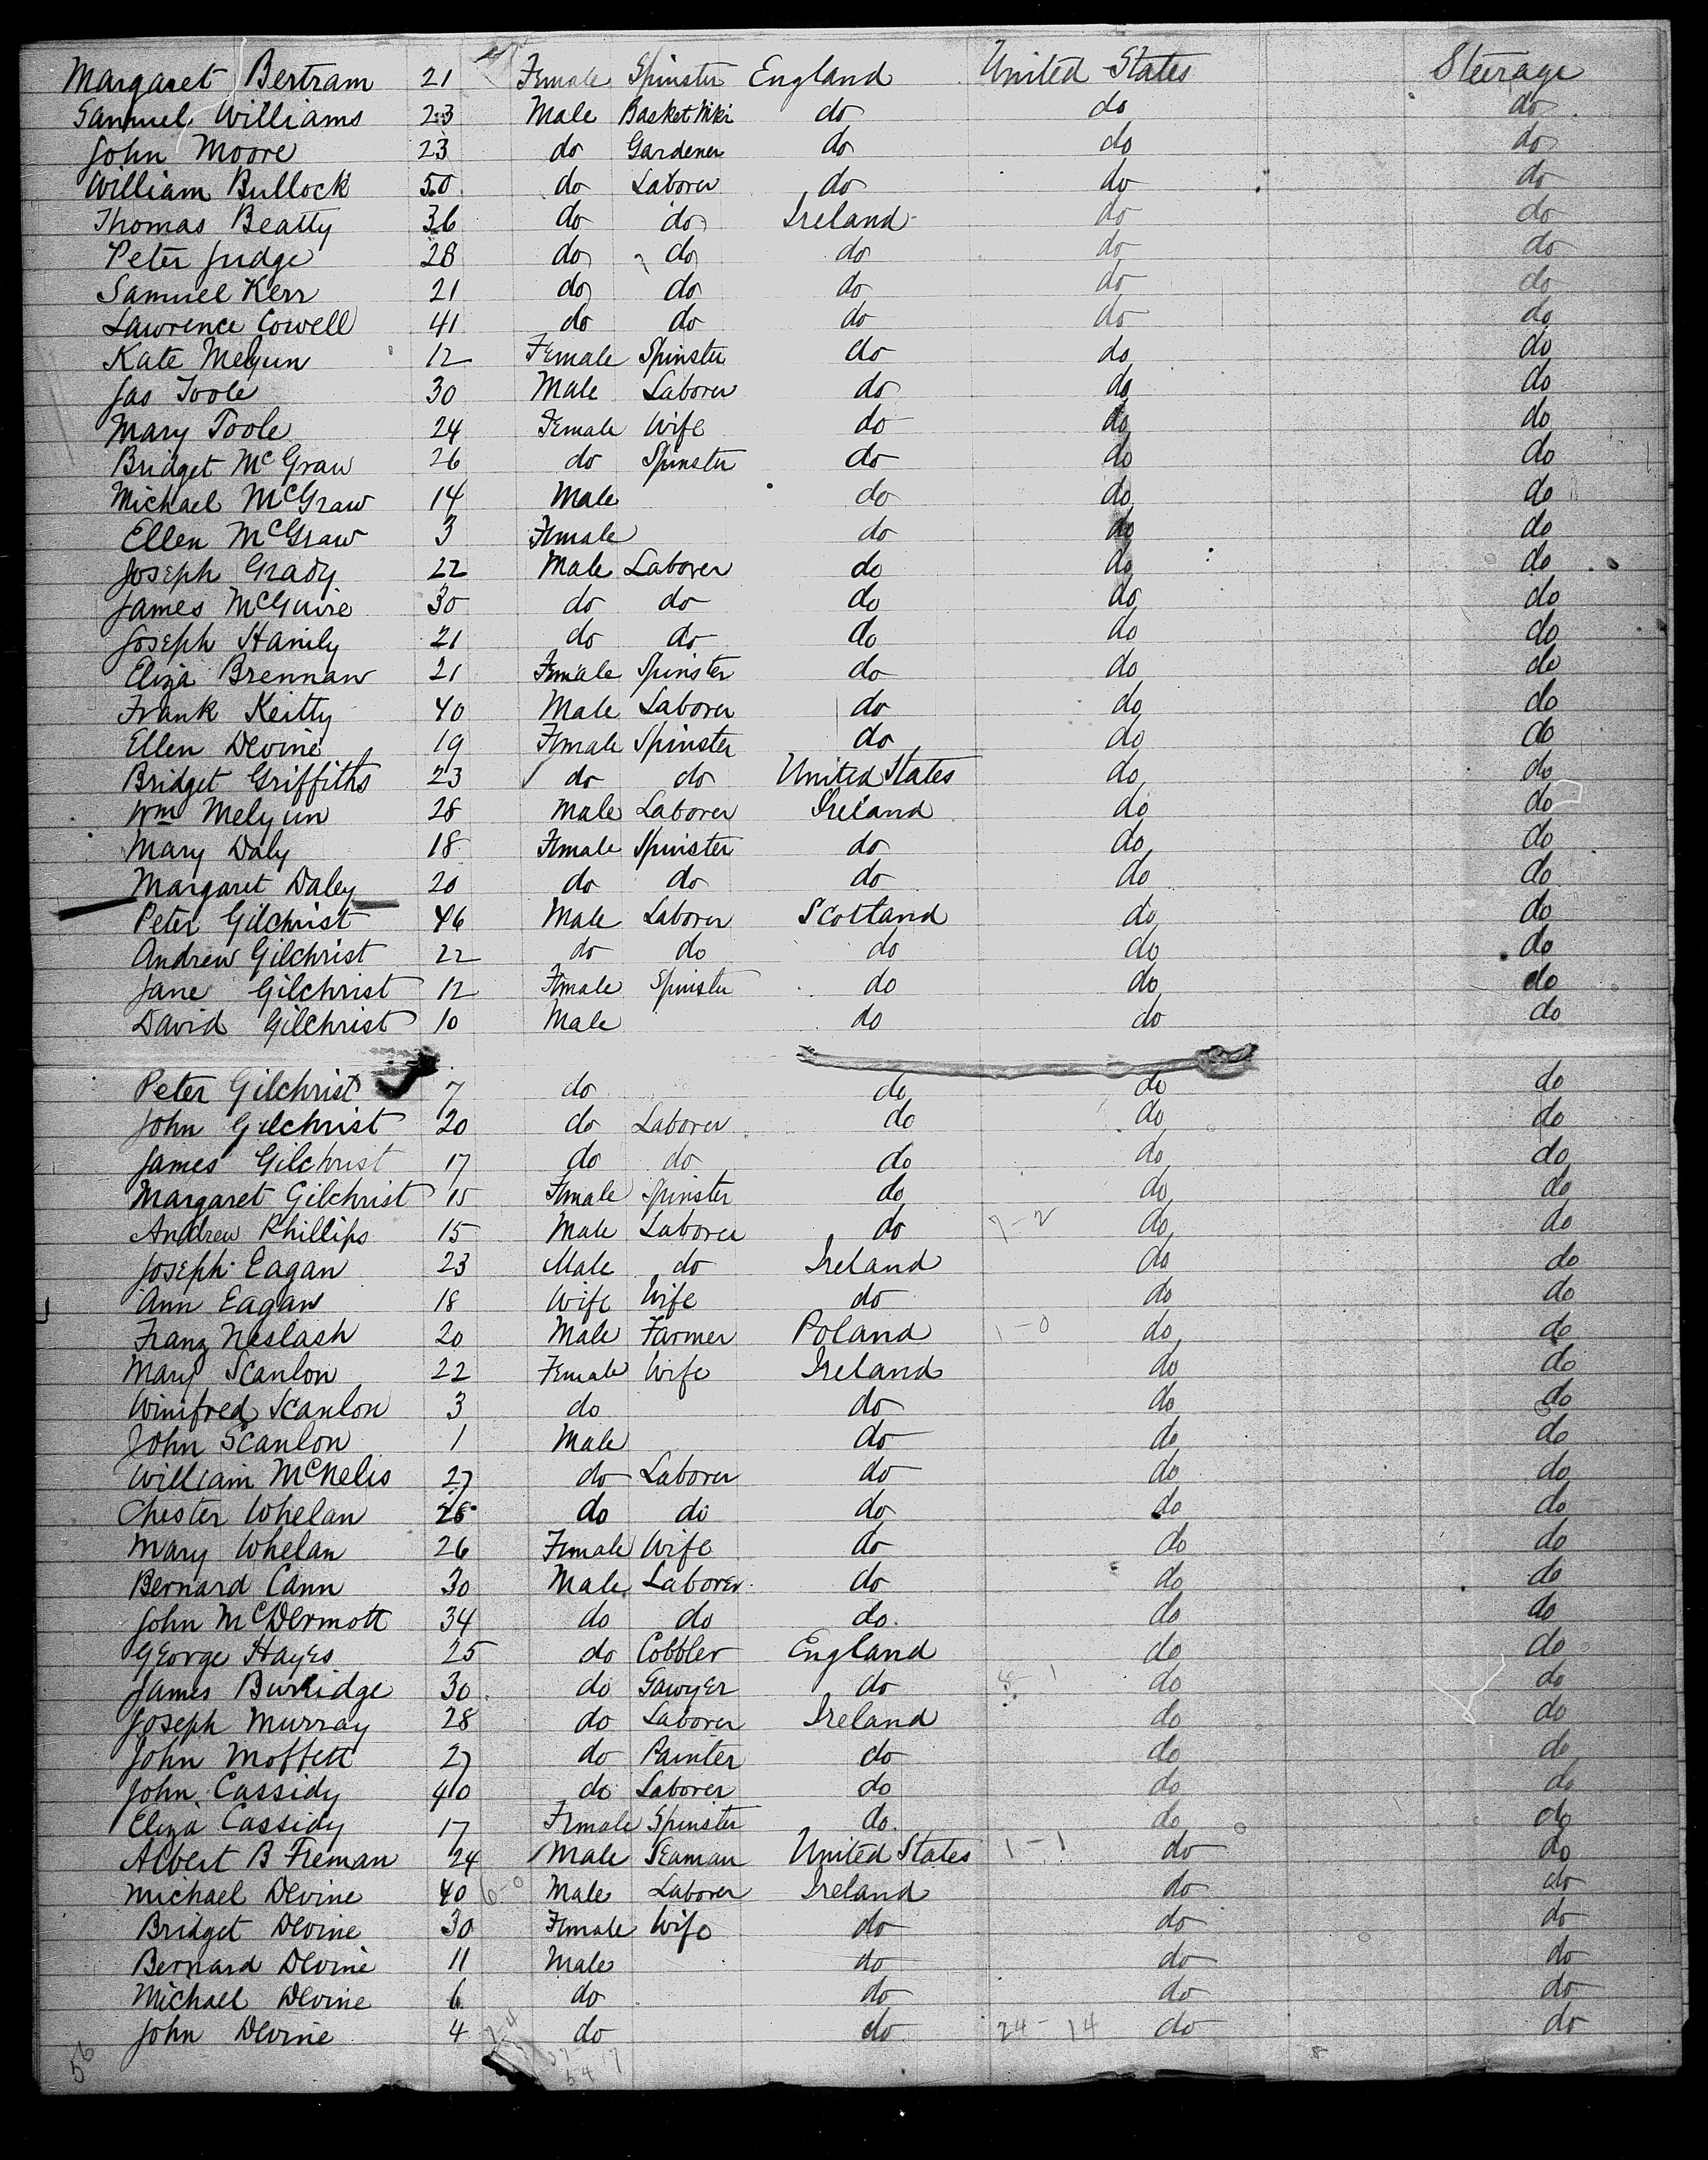 Margaret Bertram 21 Female Spinster England United States Steerage
Samuel Williams 23 Male Basket do do do
John Moore 23 do Gardener do do do
William Bullock 50 do Laborer do do do
Thomas Beatty 36 do do Ireland do do
Peter Judge 28 do do do do do
Samuel Kerr 21 do do do do do
Lawrence Cowell 41 do do do do do
Kate Melyun 12 Female Spinster do do do
Jas Toole 30 Male Laborer do do do
Mary Toole 24 Female Wife do do do
Bridget McGraw 26 do Spinster do do do
Michael McGraw 14 Male do do do
Ellen McGraw 3 Female do do do
Joseph Grady 22 Male Laborer do do do
James McGuire 30 do do do do do
Joseph Hanily 21 do do do do do
Eliza Brennan 21 Female Spinster do do do
Frank Keitty 40 Male Laborer do do do
Ellen Devine 19 Female Spinster do do do
Bridget Griffiths 23 do do United States do do
Wm Melyun 28 Male Laborer Ireland do do
Mary Daly 18 Female Spinster do do do
Margaret Daley 20 do do do do do
Peter Gilchrist 46 Male Laborer Scotland do do
Andrew Gilchrist 22 do do do do do
Jane Gilchrist 12 Female Spinster do do do
David Gilchrist 10 Male do do do
Peter Gilchrist 7 do do do do
John Gilchrist 20 do Laborer do do do
James Gilchrist 17 do do do do do
Margaret Gilchrist 15 Female Spinster do do do
Andrew Phillips 15 Male Laborer do 7-2 do do
Joseph Eagan 23 Male do Ireland do do
Ann Eagan 18 Wife Wife do do do
Franz Neslash 20 Male Farmer Poland 1-0 do do
Mary Scanlon 22 Female Wife Ireland do do
Winifred Scanlon 3 do do do do
John Scanlon 1 Male do do do
William McNelis 27 do Laborer do do do
Chester Whelan 28 do do do do do
Mary Whelan 26 Female Wife do do do
Bernard Cann 30 Male Laborer do do do
John McDermott 34 do do do do do
George Hayes 25 do Cobbler England do do
James Burridge 30 do Sawyer do do do
Joseph Murray 28 do Laborer Ireland do do
John Moffett 27 do Painter do do do
John Cassidy 40 do Laborer do do do
Eliza Cassidy 17 Female Spinster do do do
Albert B Freman 24 Male Seaman United States 1-1 do do
Michael Devine 40 6-0 Male Laborer Ireland do do
Bridget Devine 30 Female Wife do do do
Bernard Devine 11 Male do do do
Michael Devine 6 do do do do
John Devine 4 do do 24-14 do do
56